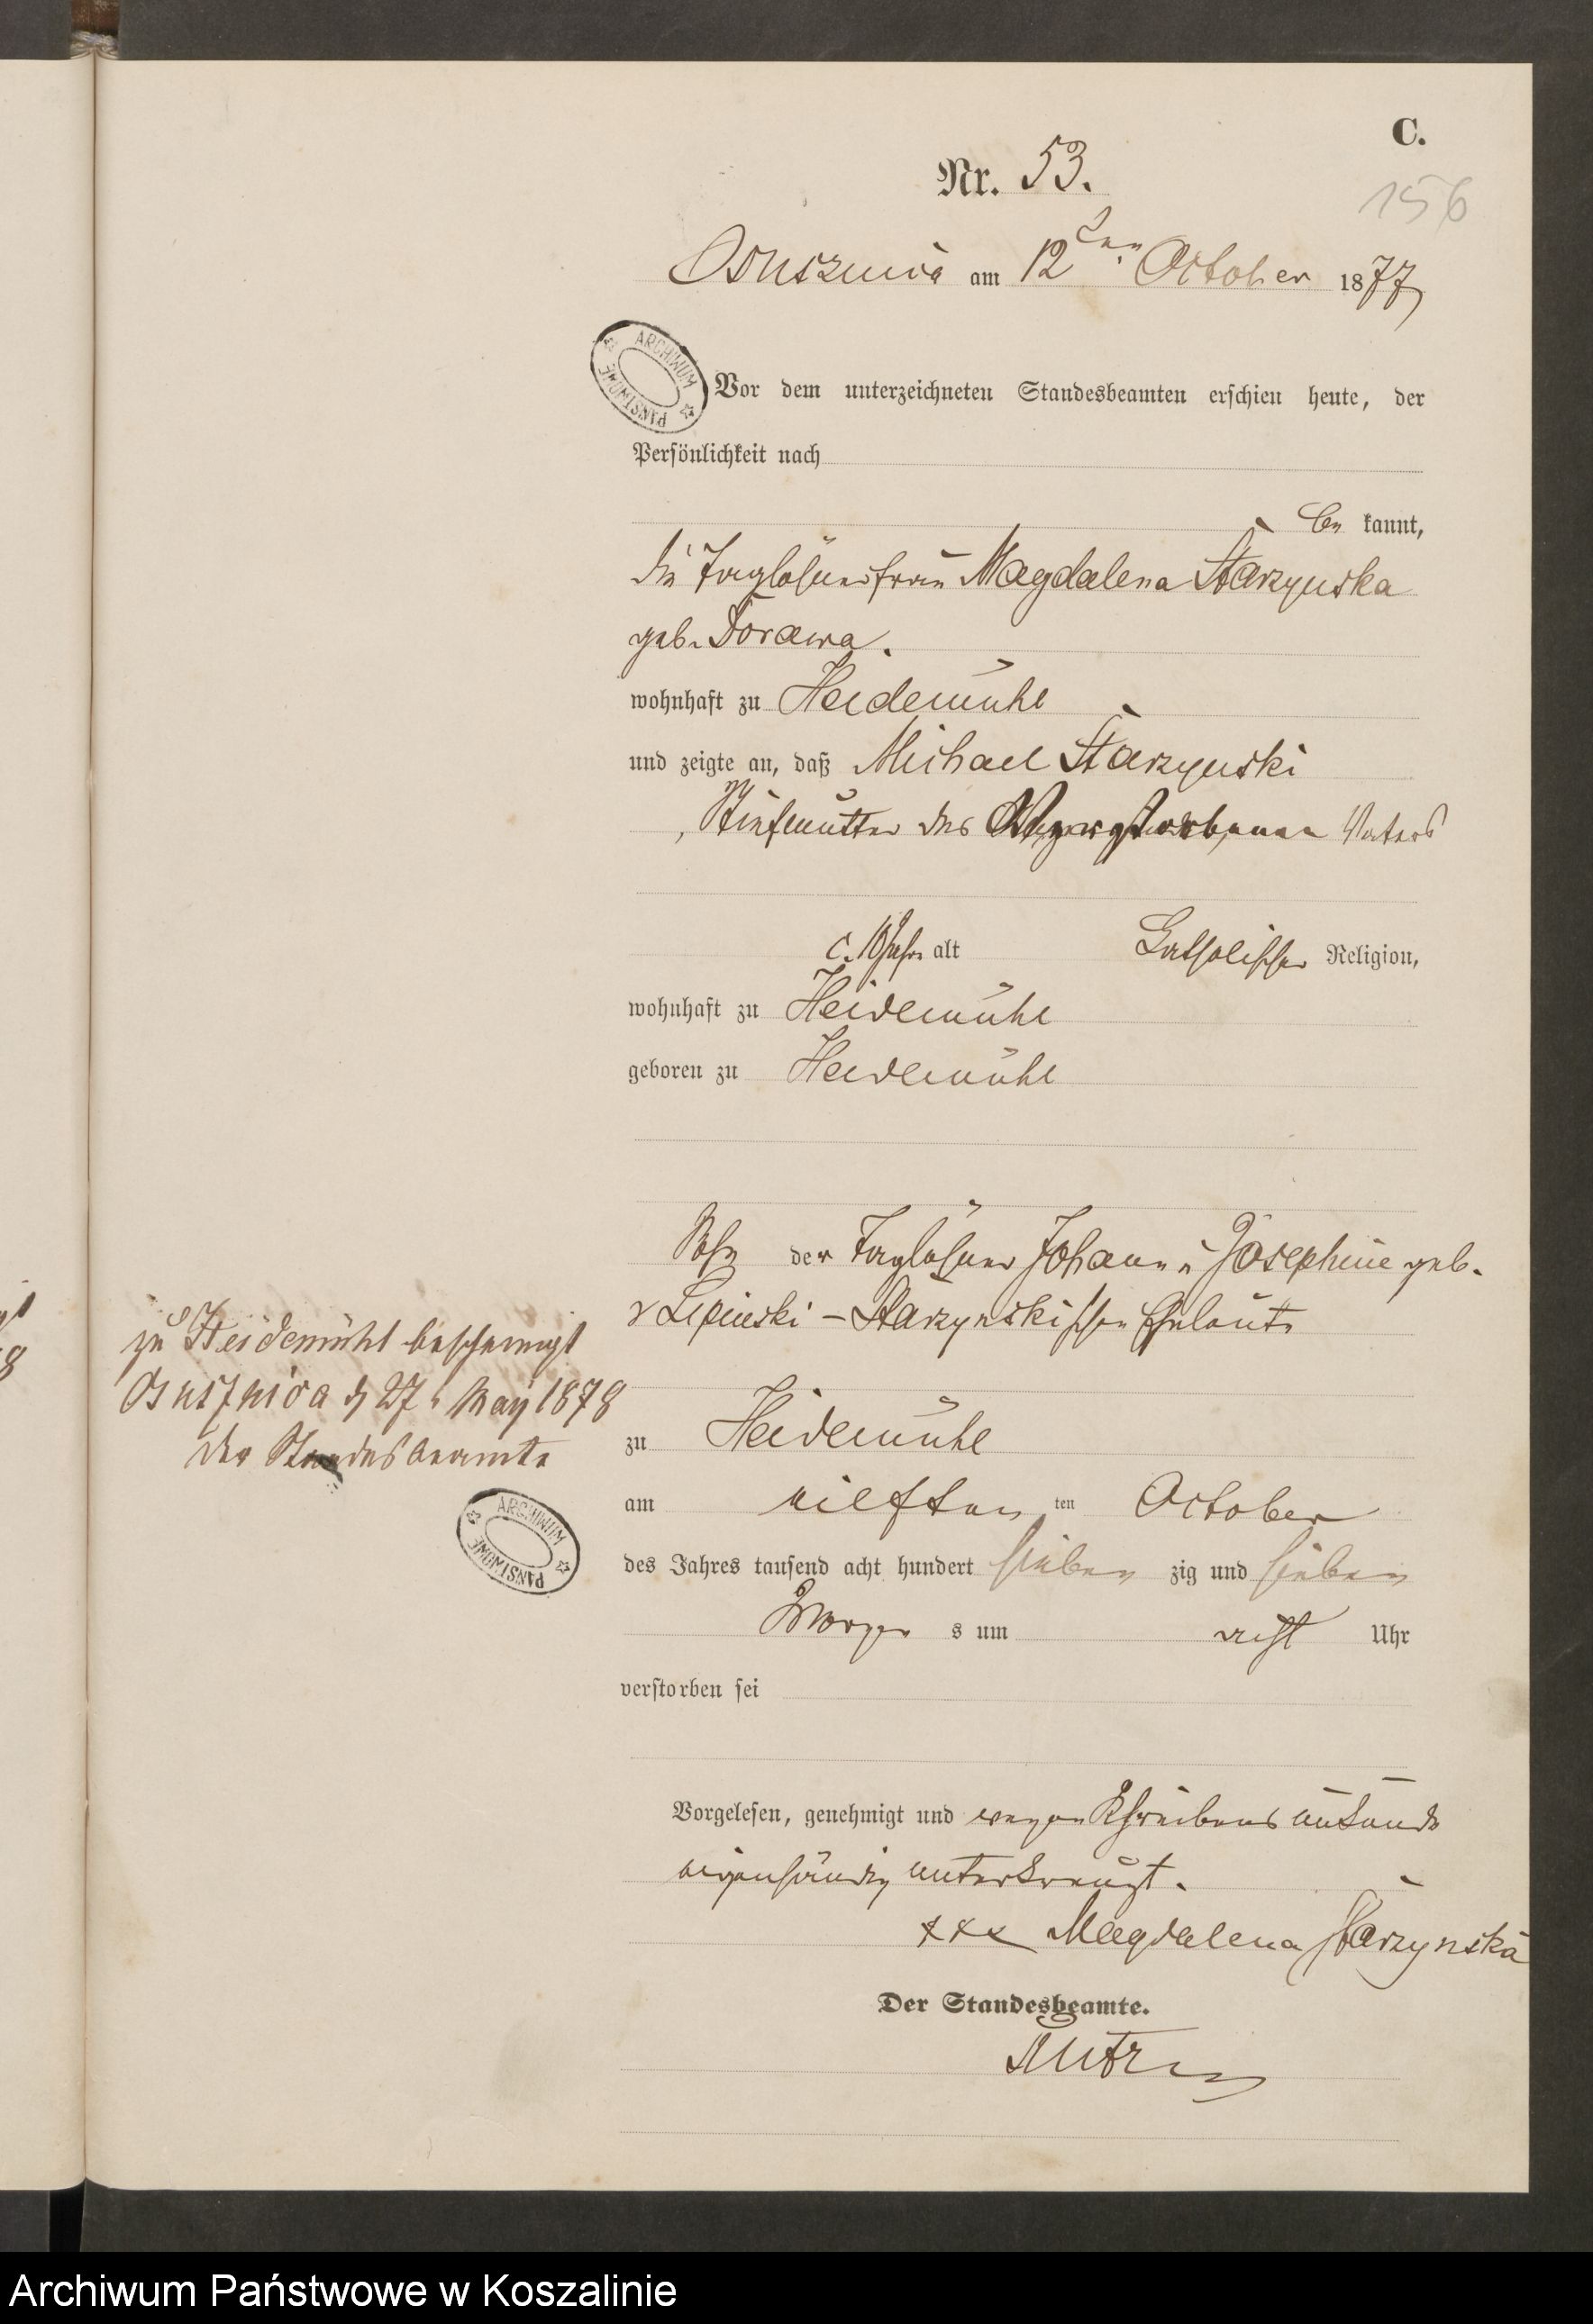 C.
Nr. 53.
156
Osuszniça am 12ten October 1877
ARCHIWUM PAŃSTWOWE
Vor dem unterzeichneten Standesbeamten erschien heute, der
Persönlichkeit nach
be kannt,
die Taglöhnerfrau Magdalena Starzynska
geb. Dorawa.
wohnhaft zu Heidemühl
und zeigte an, daß Michael Starzynski
Stiefmutter des Vaters
c. 10 Jahr alt Catholischer Religion,
wohnhaft zu Heidemühl
geboren zu Heidemühl
Sohn der Taglöhner Johann u Josephine geb.
v Lipinski – Starzynskischen Eheleute
zu Heidemühl bescheinigt
Osusznica d 27. May 1878
Der Standesbeamte
ARCHIWUM PAŃSTWOWE
zu Heidemühl
am eilften ten October
des Jahres tausend acht hundert sieben zig und sieben
Morgen s um acht Uhr
verstorben sei
Vorgelesen, genehmigt und wegen Schreibens unkunde
eigenhändig unterkreuzt.
xxx Magdalena Starzynska
Der Standesbeamte.
Archiwum Państwowe w Koszalinie